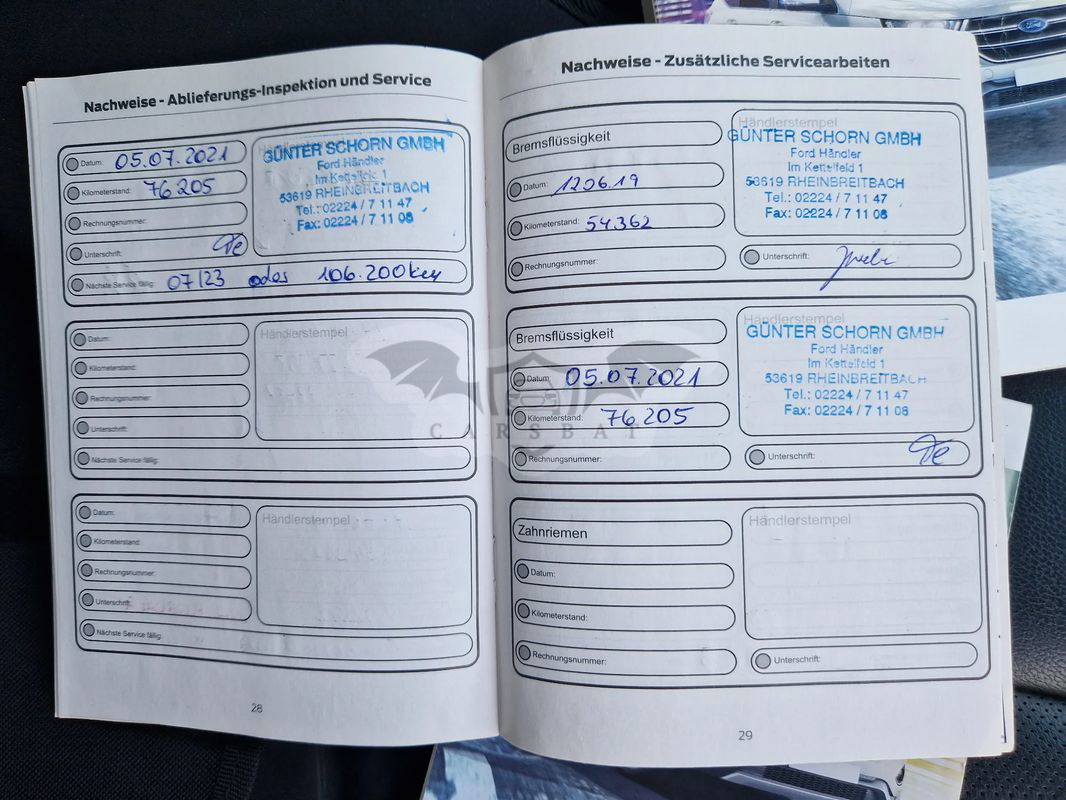 Nachweise - Ablieferungs-Inspektion und Service
Datum: 05.07.2021
Kilometerstand: 76205
Rechnungsnummer:
Unterschrift:
Nächste Service fällig: 07/23 oder 106.200 km
GÜNTER SCHORN GMBH
Ford Händler
Im Kettelfeld 1
53619 RHEINBREITBACH
Tel.: 02224 / 7 11 47
Fax: 02224 / 7 11 08
Datum:
Kilometerstand:
Rechnungsnummer:
Unterschrift:
Nächste Service fällig:
Händlerstempel
Datum:
Kilometerstand:
Rechnungsnummer:
Unterschrift:
Nächste Service fällig:
Händlerstempel
28
Nachweise - Zusätzliche Servicearbeiten
Bremsflüssigkeit
Datum: 12.06.19
Kilometerstand: 54.362
Rechnungsnummer:
Händlerstempel
GÜNTER SCHORN GMBH
Ford Händler
Im Kettelfeld 1
53619 RHEINBREITBACH
Tel.: 02224 / 7 11 47
Fax: 02224 / 7 11 08
Unterschrift:
Bremsflüssigkeit
Datum: 05.07.2021
Kilometerstand: 76205
Rechnungsnummer:
Händlerstempel
GÜNTER SCHORN GMBH
Ford Händler
Im Kettelfeld 1
53619 RHEINBREITBACH
Tel.: 02224 / 7 11 47
Fax: 02224 / 7 11 08
Unterschrift:
Zahnriemen
Datum:
Kilometerstand:
Rechnungsnummer:
Händlerstempel
Unterschrift:
29
CARSBAT
Ford